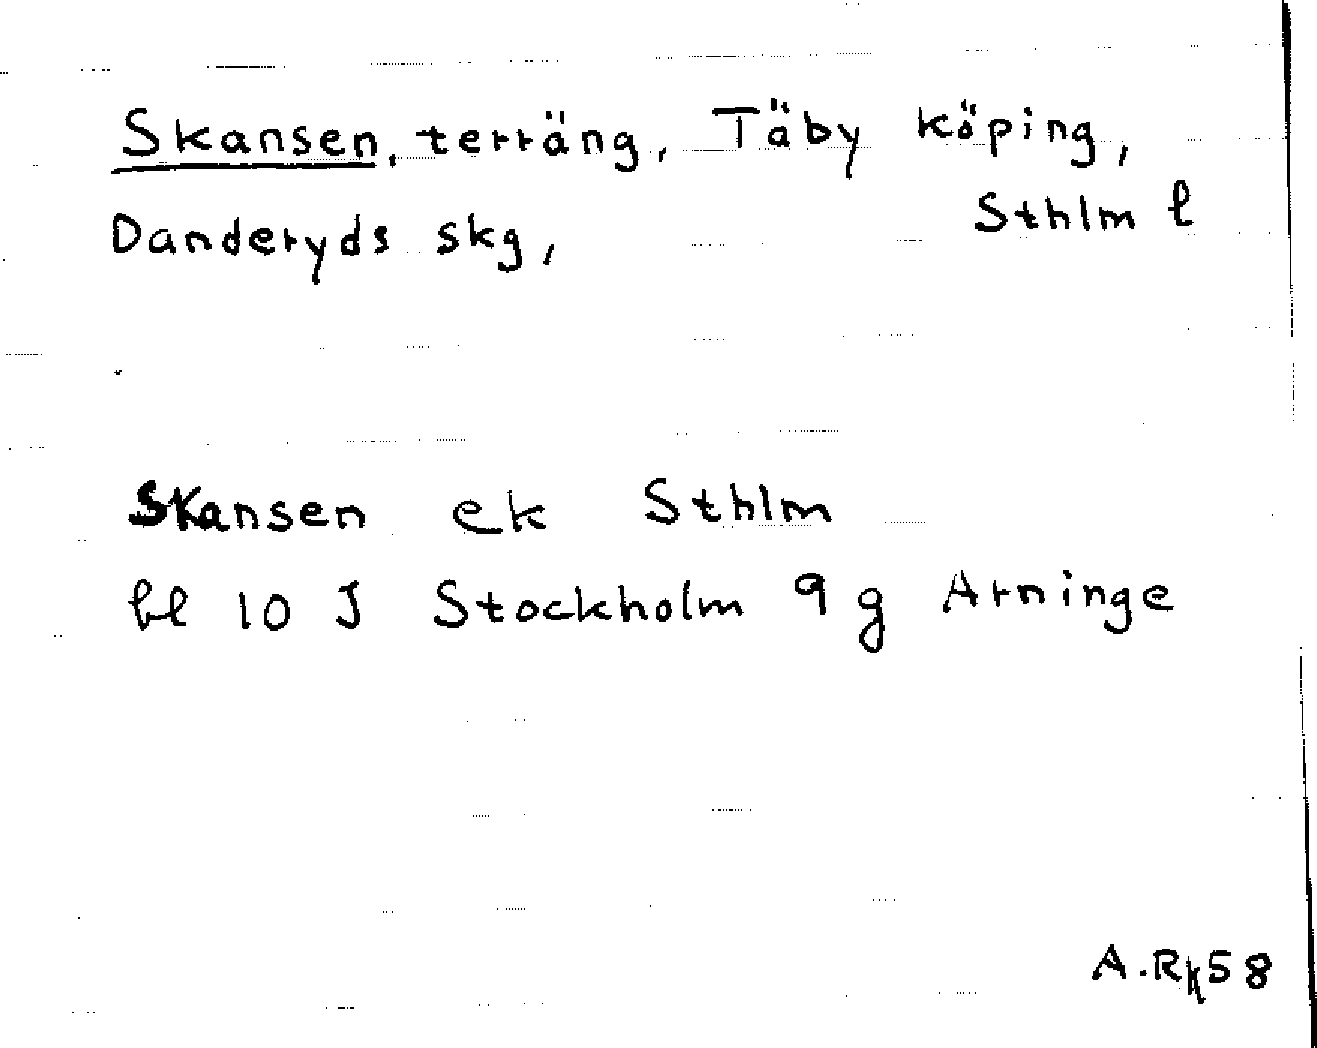 Skansen, terräng, Täby köping,
Danderyds skg, Sthlm l
Skansen ek Sthlm
bl 10 J Stockholm 9 g Arninge
A.Rk 58